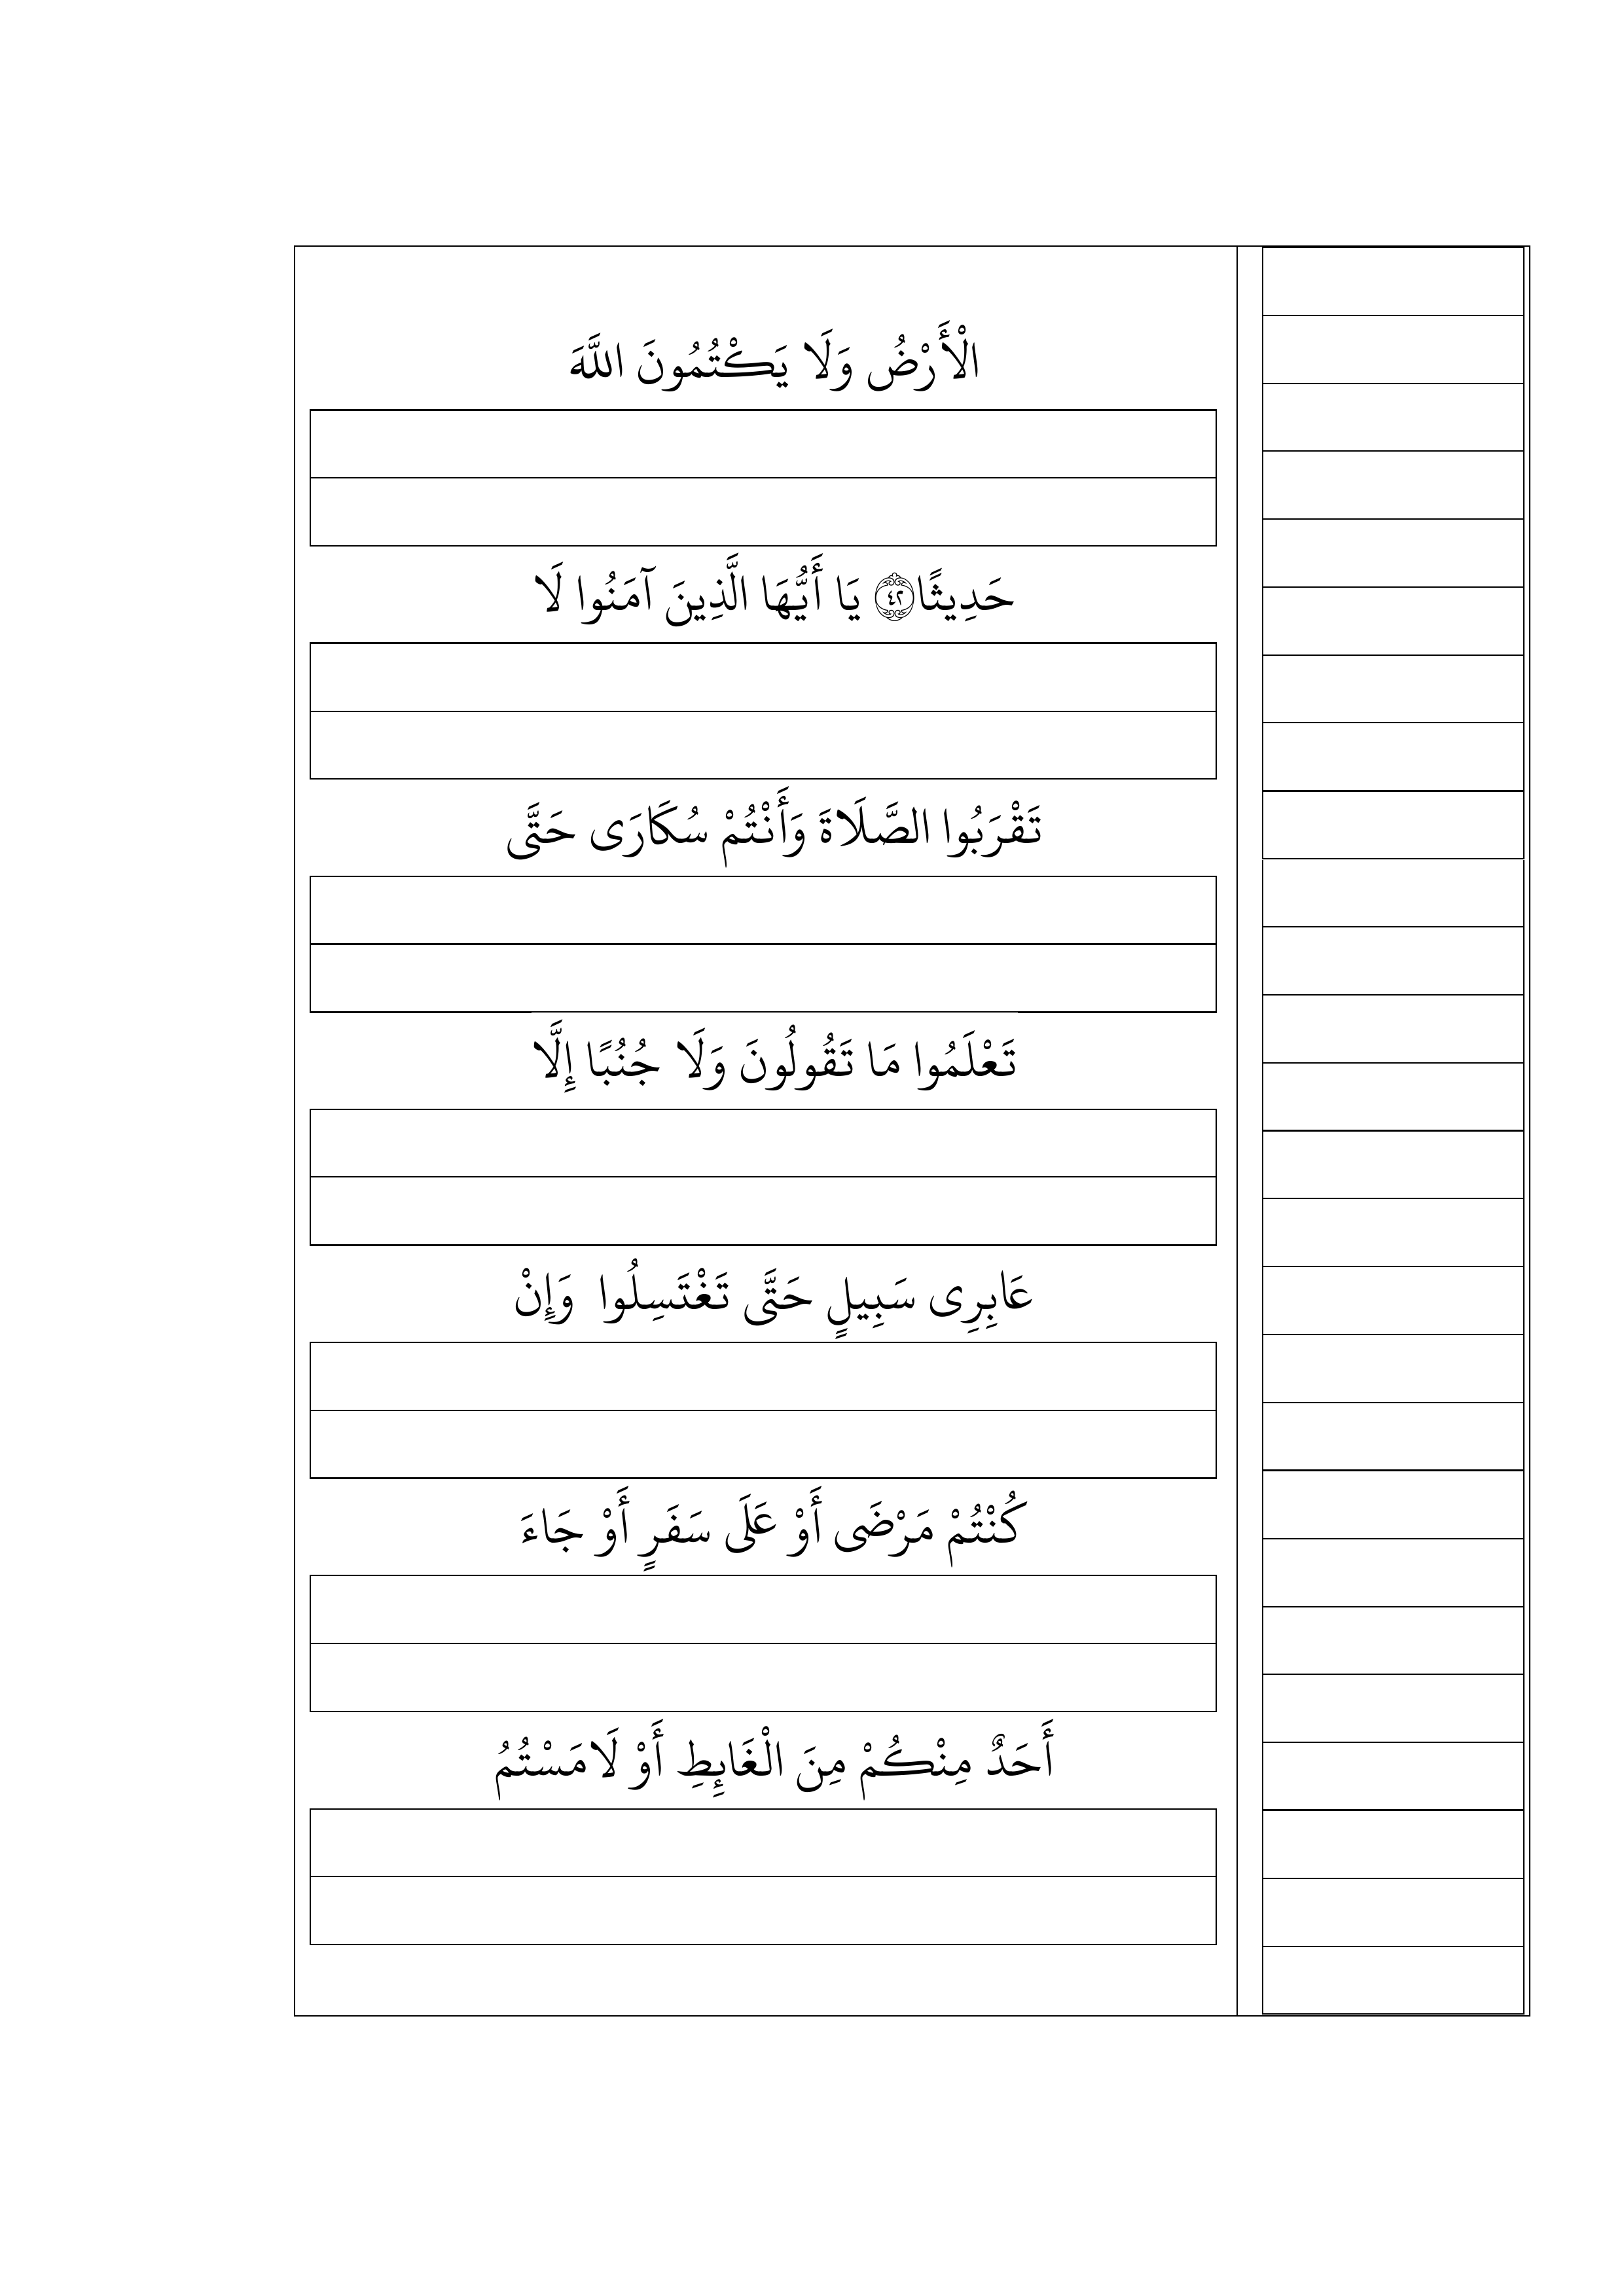 الْأَرْضُ وَلَا يَكْتُمُونَ اللَّهَ
حَدِيثًا ﴿٤٢﴾ يَا أَيُّهَا الَّذِينَ آمَنُوا لَا
تَقْرَبُوا الصَّلَاةَ وَأَنْتُمْ سُكَارَى حَتَّى
تَعْلَمُوا مَا تَقُولُونَ وَلَا جُنُبًا إِلَّا
عَابِرِى سَبِيلٍ حَتَّى تَغْتَسِلُوا وَإِنْ
كُنْتُمْ مَرْضَى أَوْ عَلَى سَفَرٍ أَوْ جَاءَ
أَحَدٌ مِنْكُمْ مِنَ الْغَائِطِ أَوْ لَامَسْتُمُ